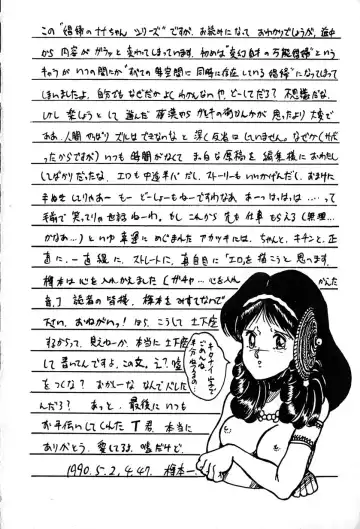 この"俉樽のナイちゃん シリーズ"ですが、お読みになって おわかりでしょうが、途中
から 内容が ガラッと 変わってしまっています。初めは"変幻自在の万能俉樽"という
キャラが いつの間にか"すべての時空間に同時に存在している俉樽"になってしまって
しまいましたよ。自分でもなぜだかよくわかんないや。どーしてだろ?不思議だな。
しかし 楽しようとして 選んだ 夜薬から カヒキのあかんかが 思ったより大変で
ああ、人間やっぱり ズルはできないなと 深く反省はしていません。なぜか〈だ
ったからですが〉いつも 時間がなくて まっ白な原稿を 編集様に おわたし
してばかりだったな。エロも中途半パだし、ストーリーもいいかげんだし、おまけに
手ぬきしてりゃあー もー どーしょーもねーですわなあ。おーっはっはっは……って
毛布で笑ってりゃ世話ねーわ。もし こんから先も仕事もらえる(無理…
かなあ…)という幸運に めぐまれた アカツキには、ちゃんと、キチンと、正
直に、一直線に、ストレートに、真面目に「エロ」を描こうと 思ってます。
樽本は心を入れかえました(ガチャ…心を入れかえた
音。)読者の皆様、樽本をみすてないで
下さい。おねがいっ!ほら、こうして 土下座
するからって、見えねーか、本当に 土下座
して書いてんですよ。この文。え?嘘
をつくな?おかしーな なんでバレた
んだろ?あっと、最後にいつも
お手伝いしてくれたT君、本当に
ありがとう。愛してるよ。嘘だけど。
1990.5.2.4.47. 樽本一
キタナイ字で
ごめんな。